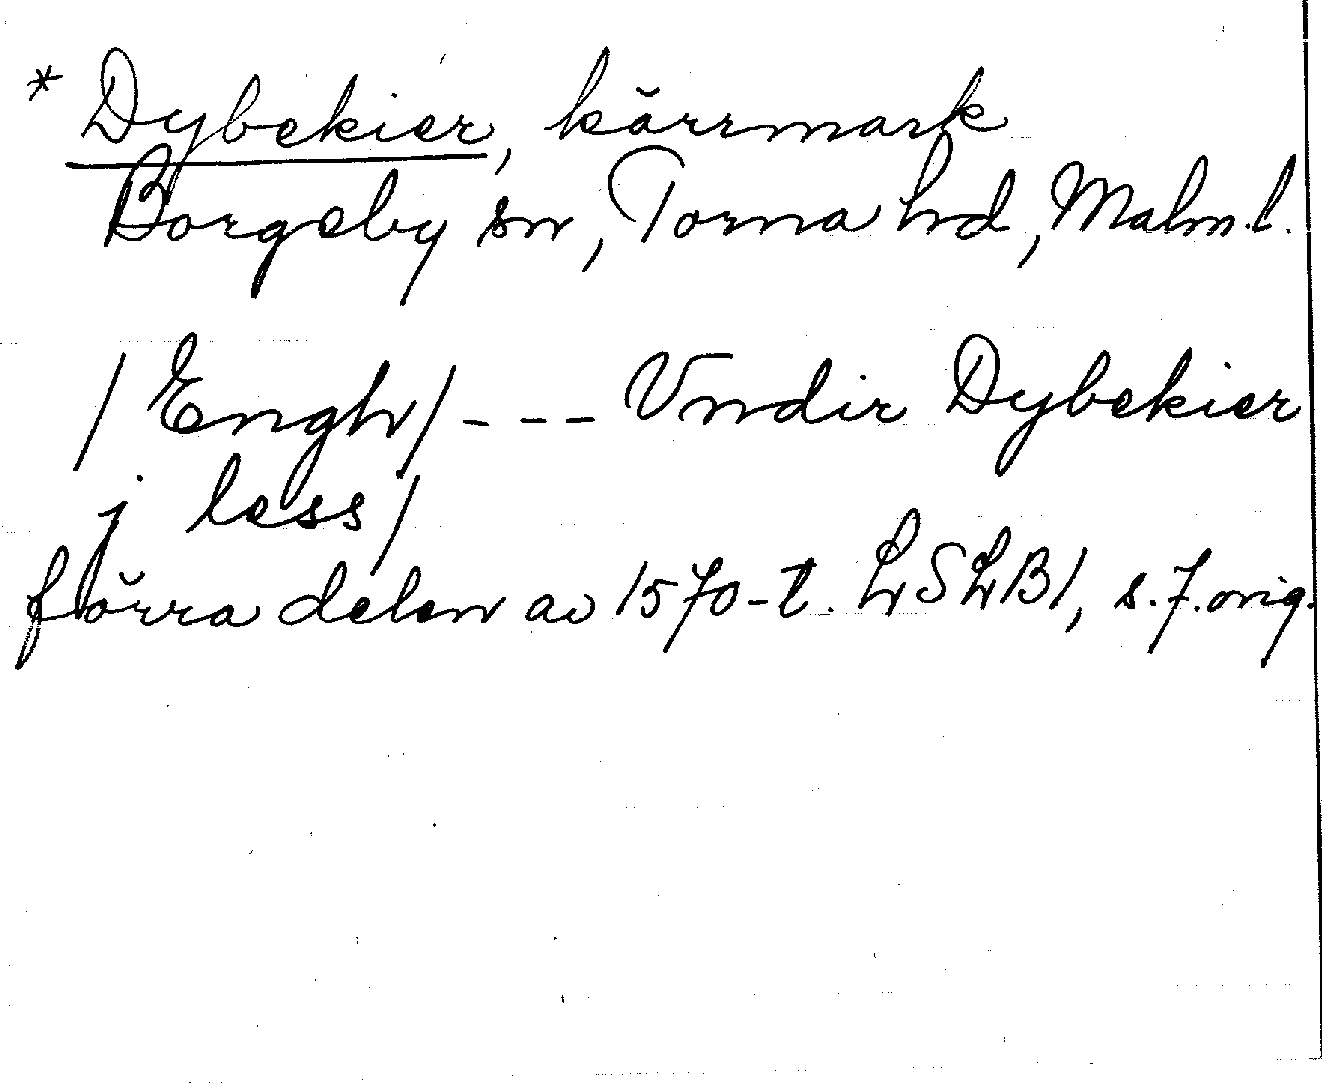 * Dybekier, kärrmark
Borgeby sn, Torna hd, Malm. l.
/Engh/ - - - Vndir Dybekier
j less/
förra delen av 1570-t. LSLB1, s. 7. orig.